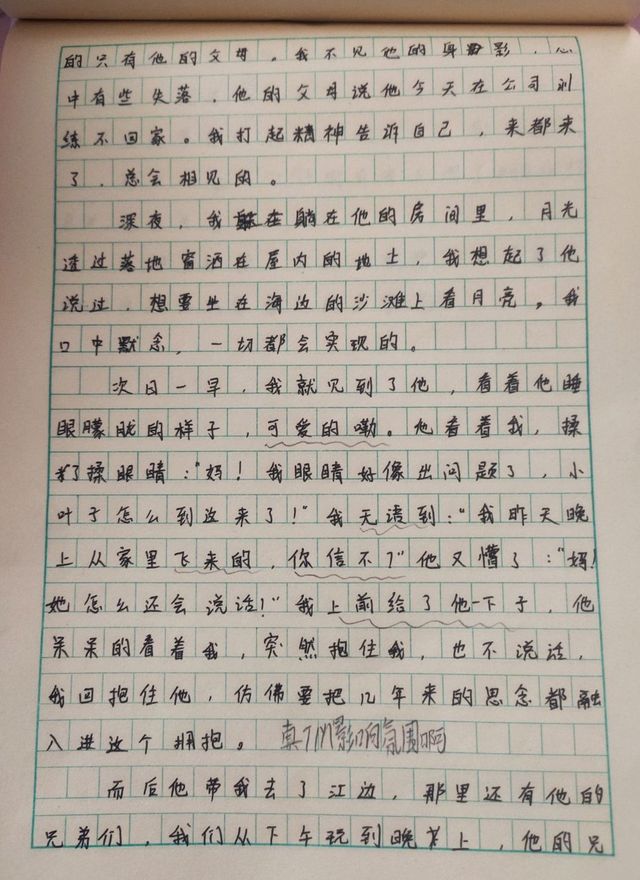 的只有他的父母。我不见他的身影，心
中有些失落，他的父母说他今天在公司训
练不回家。我打起精神告诉自己，来都来
了，总会相见的。
深夜，我躺在他的房间里，月光
透过落地窗洒在屋内的地上，我想起了他
说过，想要坐在海边的沙滩上看月亮。我
口中默念，一切都会实现的。
次日一早，我就见到了他，看着他睡
眼朦胧的样子，可爱的嘞。他看着我，揉
了揉眼睛："妈！我眼睛好像出问题了，小
叶子怎么到这来了！"我无语到："我昨天晚
上从家里飞来的，你信不？"他又懵了："妈！
她怎么还会说话！"我上前给了他一下子，他
呆呆的看着我，突然抱住我，也不说话，
我回抱住他，仿佛要把几年来的思念都融
入进这个拥抱。 真了们影响氛围啊
而后他带我去了江边，那里还有他的
兄弟们，我们从下午玩到晚上，他的兄